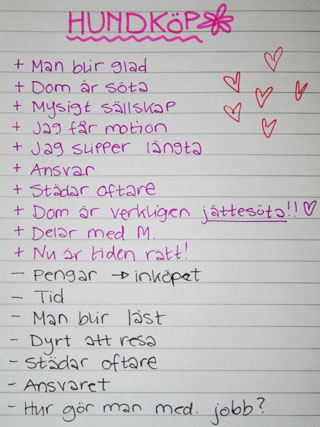 HUNDKÖP
+ Man blir glad
+ Dom är söta
+ Mysigt sällskap
+ Jag får motion
+ Jag slipper längta
+ Ansvar
+ Städar oftare
+ Dom är verkligen jättesöta!!
+ Delar med M.
+ Nu är tiden rätt!
- Pengar → inköpet
- Tid
- Man blir låst
- Dyrt att resa
- Städar oftare
- Ansvaret
- Hur gör man med. jobb?